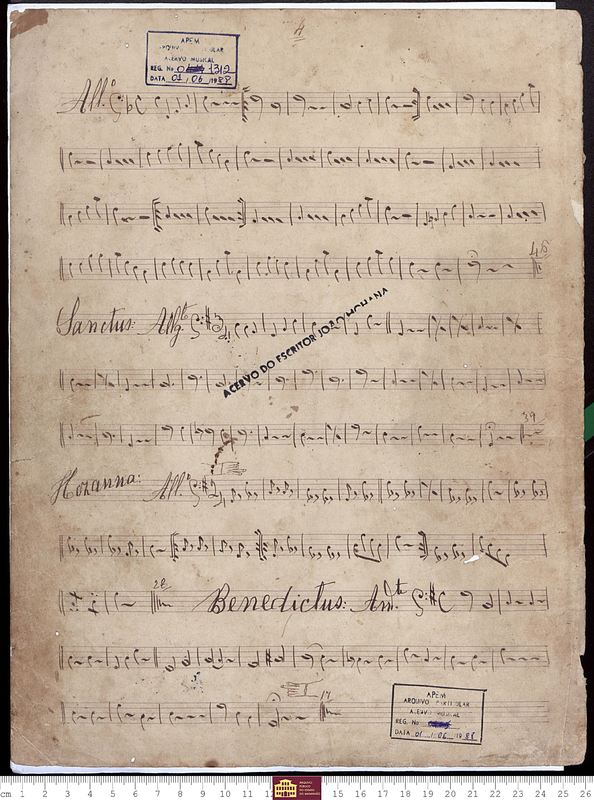 4
APEM
ACERVO MUSICAL
REG. No 1312
DATA 01 / 06 / 1988
All.º
48
Sanctus: Allg.to
ACERVO DO ESCRITOR JOÃO MOHANA
39
Hozanna: All.º
28
Benedictus: And.te
17
APEM
ARQUIVO PARTICULAR
ACERVO MUSICAL
REG. No
DATA 01 / 06 / 1988
cm 1 2 3 4 5 6 7 8 9 10 11 15 16 17 18 19 20 21 22 23 24 25 26
ARQUIVO PÚBLICO DO ESTADO DO MARANHÃO